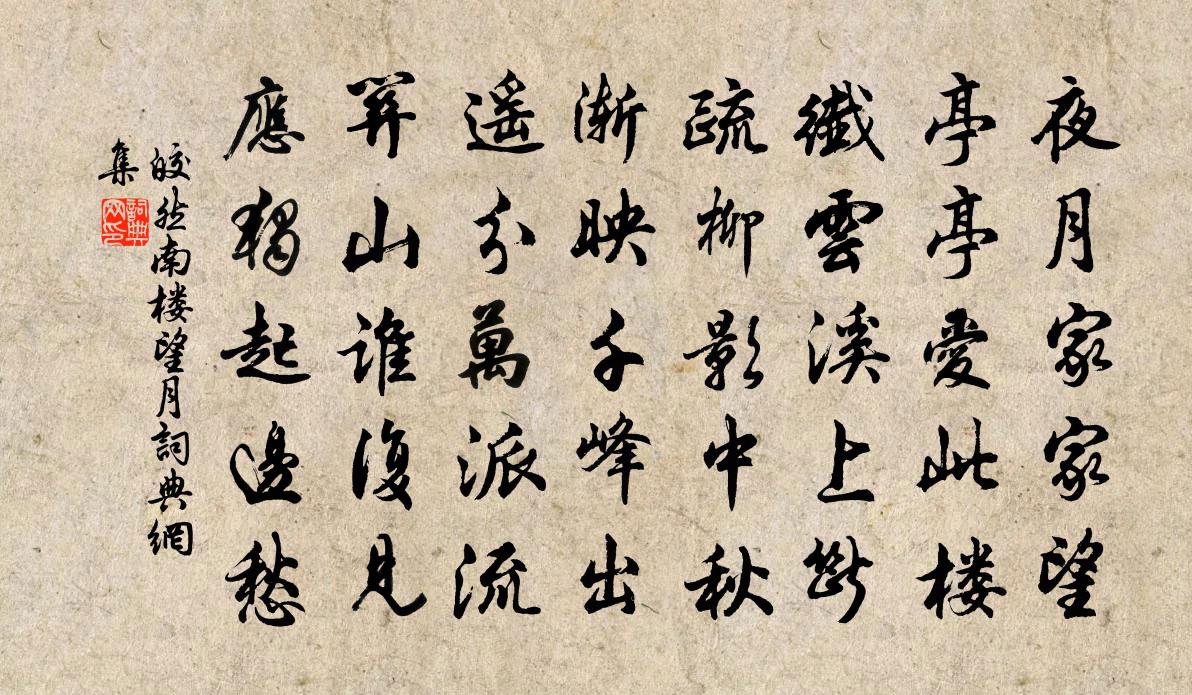 夜月家家望
亭亭愛此楼
纖雲溪上斷
疏柳影中秋
漸映千峰出
遥分萬派流
關山誰復見
應獨起邊愁
皎然南楼望月詞典網
集
詞典
网印